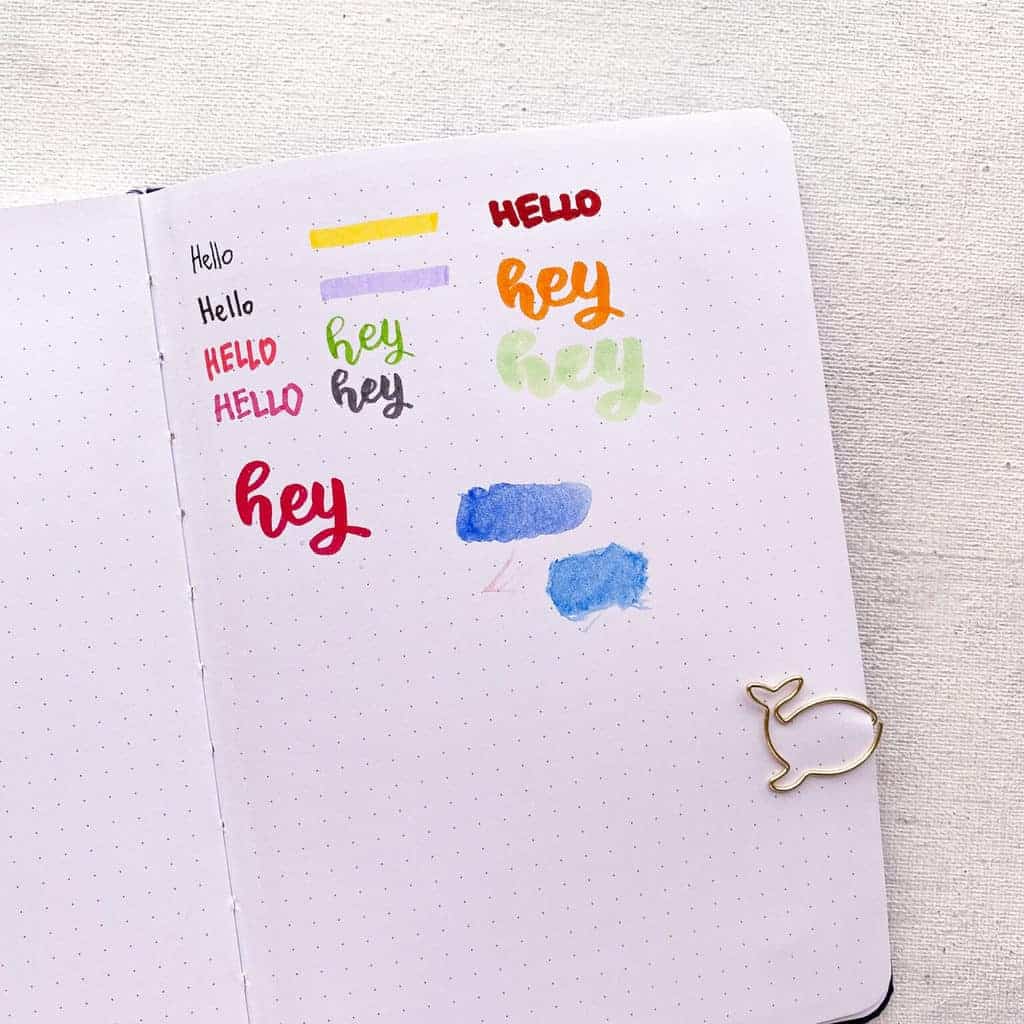 Hello
Hello
HELLO
HELLO
hey
hey
hey
HELLO
hey
hey